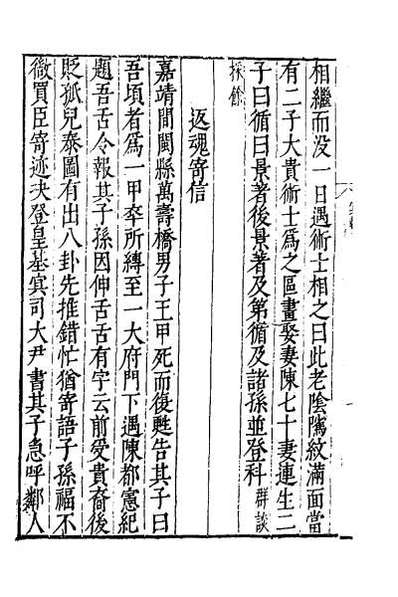 相繼而没一日遇術士相之曰此老陰隲紋滿面當
有二子大貴術士爲之區畫娶妻陳七十妻連生二
子曰循曰景著後景著及第循及諸孫並登科群談
採餘
返魂寄信
嘉靖間閩縣萬壽橋男子王甲死而復甦告其子曰
吾頃者爲一甲卒所縛至一大府門下遇陳都憲紀
題吾舌令報其子孫因伸舌舌有字云前受貴裔後
貶孤兒泰圖有出八卦先推錯忙猶寄語子孫福不
徼買臣寄迹决登皇基賓司大尹書其子急呼鄰人